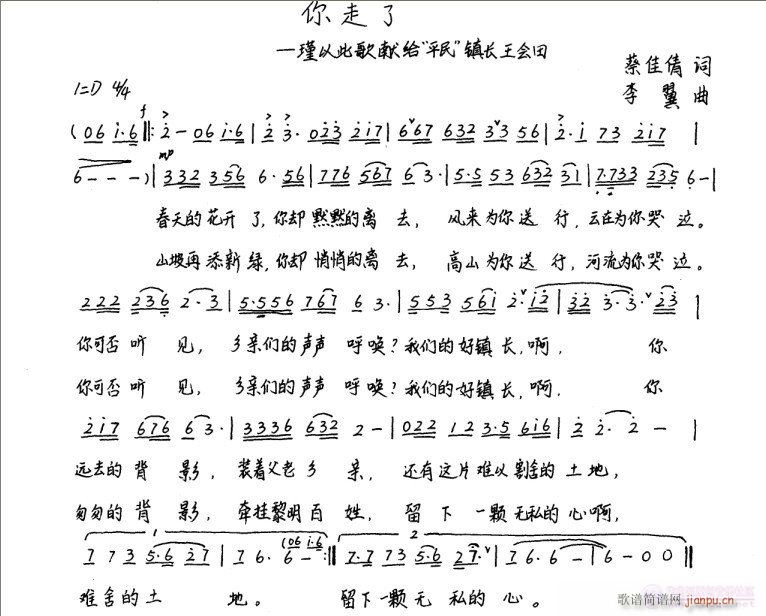 你走了
—瑾以此歌献给“平民”镇长王会田
蔡佳倩 词
1=D 4/4
李翼 曲
f
(06 i·6 ‖: 2 - 06 i·6 | 2 3· 023 217 | 6767 632 3 3 56 | 2·i 73 217 |
mp
6 - - -) | 332 356 6·56 | 776 567 6 3· | 5·5 53 632 31 | 7·733 235 6 - |
春天的花开 了,你却 默默的离 去, 风来为你送 行,云在为你哭 泣。
山坡再添新 绿,你却 悄悄的离 去, 高山为你送 行,河流为你哭 泣。
222 236 2·3 | 5·556 767 6 3· | 553 56i 2·i2 | 32 3·3·23 |
你可否 听 见, 乡亲们的声声 呼唤?我们的好镇长,啊, 你
你可否 听 见, 乡亲们的声声 呼唤?我们的好镇长,啊, 你
217 676 6 3· | 3336 632 2 - | 022 12 3·5 6i6 | 2 2· 2 - |
远去的 背 影, 装着父老乡 亲, 还有这片难以割舍的土地,
匆匆的 背 影, 牵挂黎明百 姓, 留下一颗无私的心啊,
1
(06 i·6
2
7 73 5·6 27 | 76· 6 - :‖ 7·7 73 5·6 27· | 76·6 - | 6 - 0 0 ‖
难舍的土 地。 留下一颗无 私的 心。
歌谱简谱网
jianpu.cn